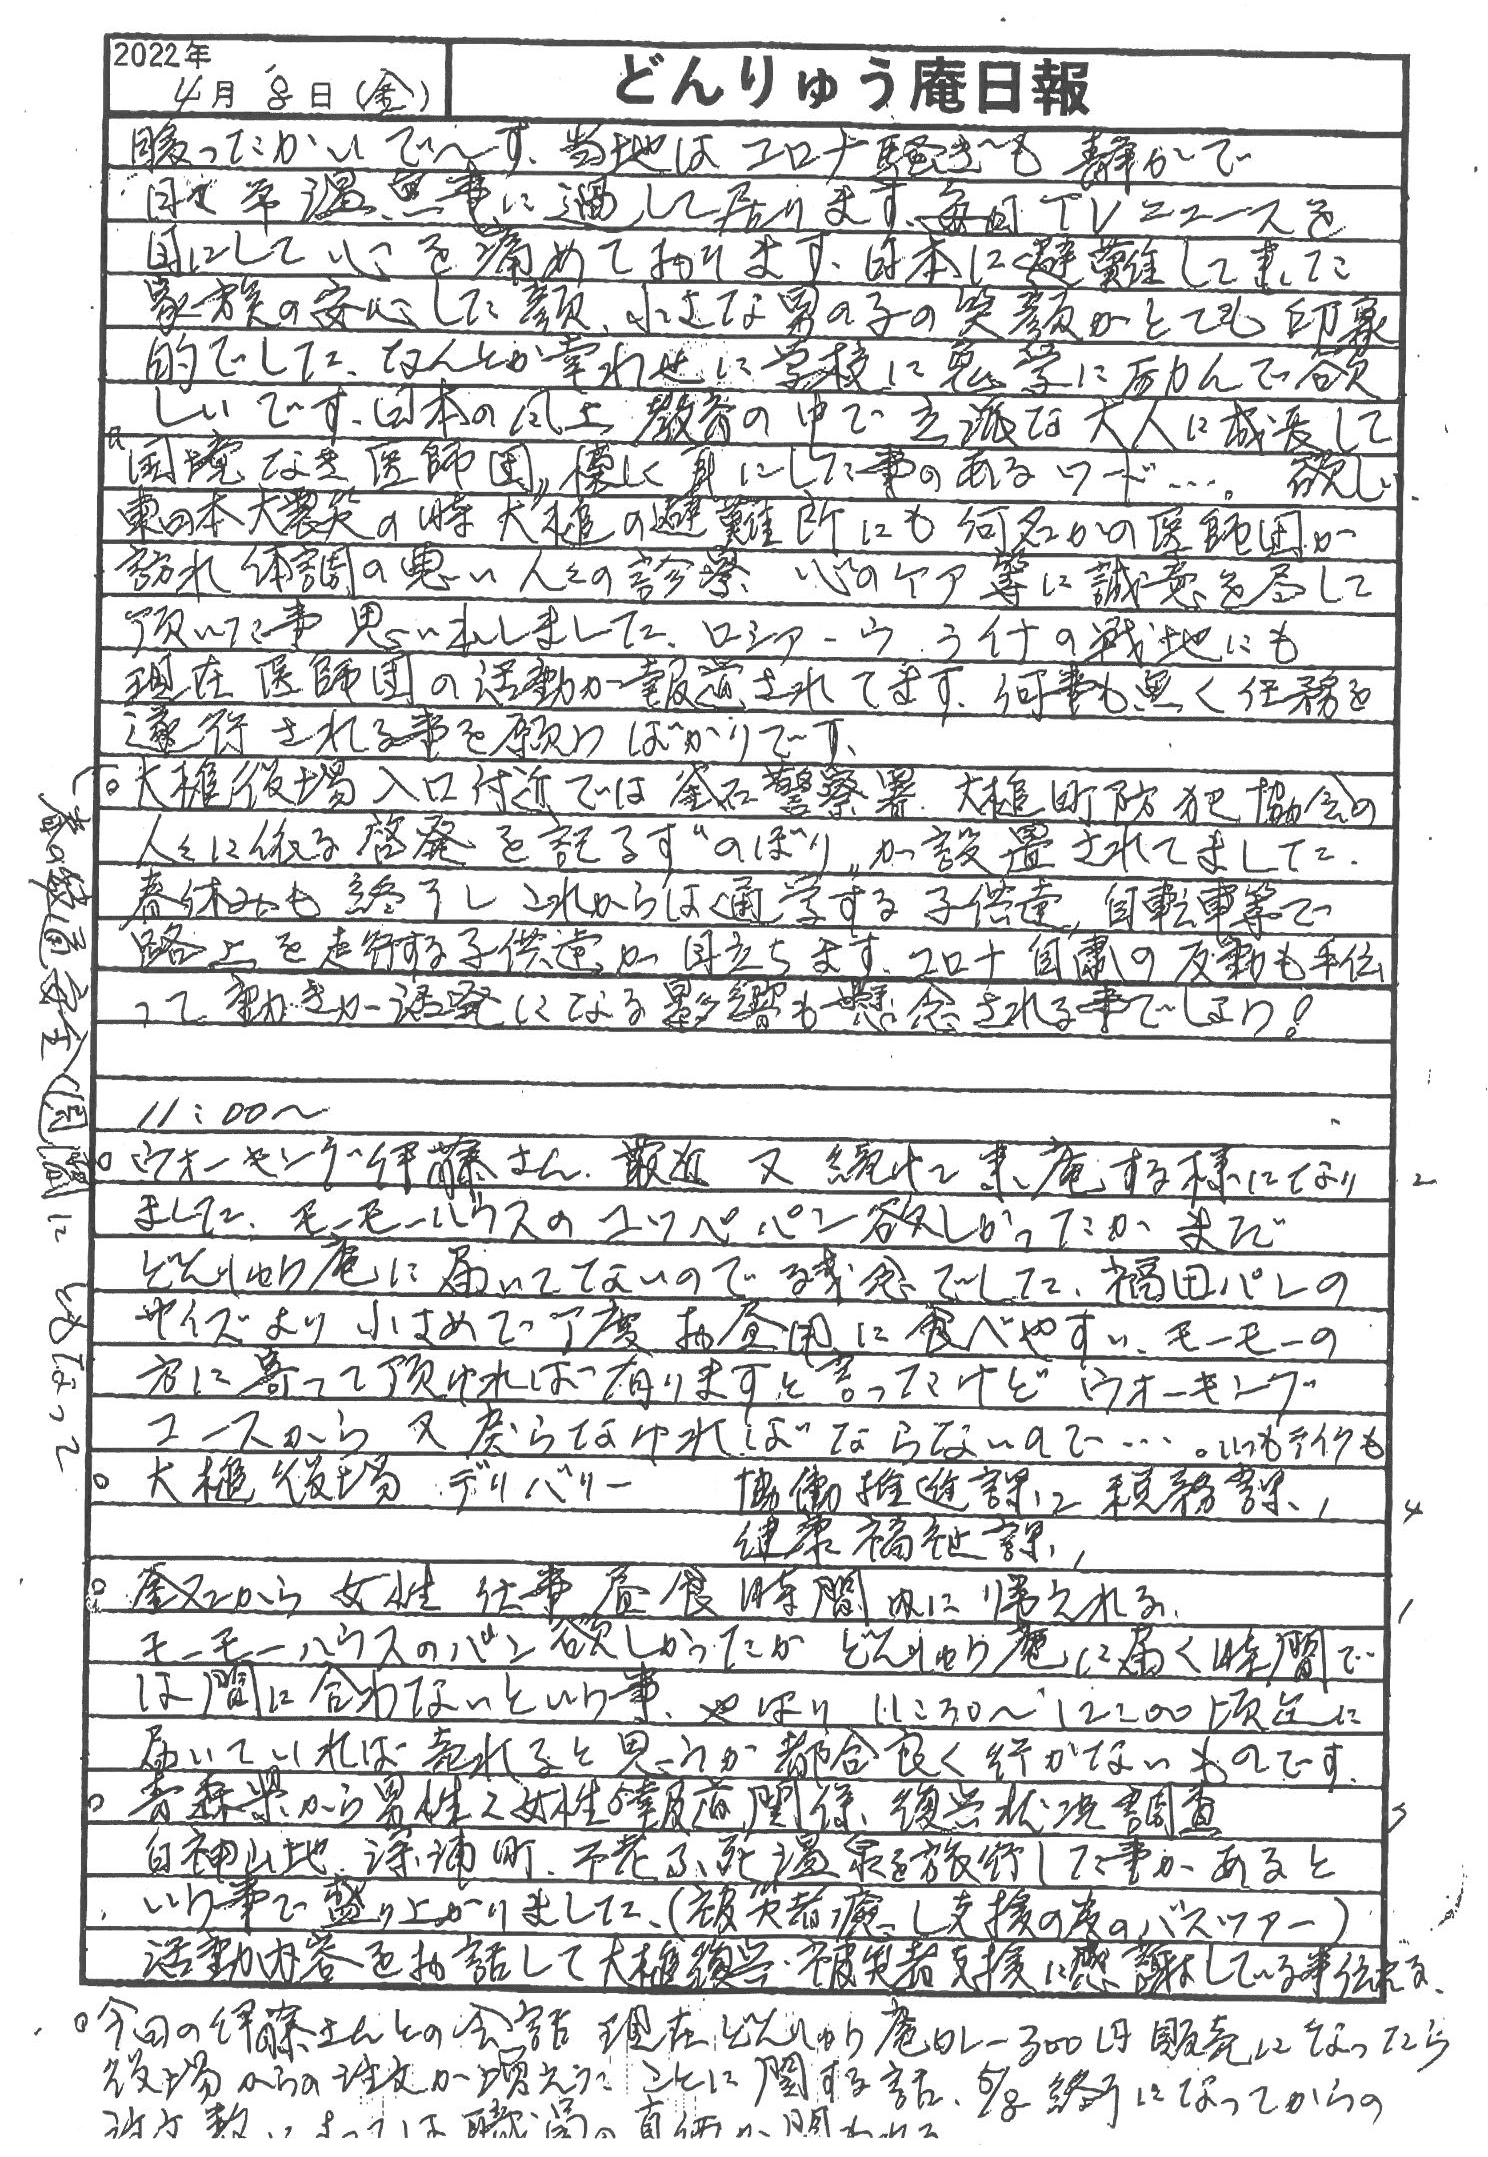 2022年
4月8日(金)
どんりゅう庵日報
暖ったかいで～す、当地はコロナ騒ぎも静かで
日々平温無事に過して居ります、毎日TVニュースを
目にして心を痛めております、日本に避難して来た
家族の安心した顔、小さな男の子の笑顔がとても印象
的でした、なんとか幸わせに学校に勉学に励んで欲
しいです、日本の風土教育の中で立派な大人に成長して
欲しい
。"国境なき医師団"、良く耳にした事のあるワード…。
東日本大震災の時大槌の避難所にも何名かの医師団が
訪れ体調の悪い人々の診察、心のケア等に誠意を尽して
頂いた事思い出しました、ロシア－ウクライナの戦地にも
現在医師団の活動が報道されてます、何事も無く任務を
遂行される事を願うばかりです、
。大槌役場入口付近では釜石警察署、大槌町防犯協会の
人々に依る啓発を記るす"のぼり"が設置されてました、
春休みも終了しこれからは通学する子供達、自転車等で
路上を走行する子供達が目立ちます、コロナ自粛の反動も手伝
って動きが活発になる影響も懸念される事でしょう!
春の交通安全週間にともなって
11:00～
。ウォーキング伊藤さん、最近又続けて来庵する様になり 2
ました、モーモーハウスのコッペパン欲しがったがまだ
どんりゅう庵に届いてないので残念でした、福田パンの
サイズより小さめで丁度お昼用に食べやすい、モーモーの
方に寄って頂ければ有りますと言ったけどウォーキング
コースから又戻らなければならないので…。いつもテイクも
。大槌役場 デリバリー 協働推進課2 税務課1 4
健康福祉課1
。釜石から女性 仕事昼食時間内に帰えれる、 1
モーモーハウスのパン欲しかったがどんりゅう庵に届く時間で
は間に合わないという事、やはり11:30～12:00頃迄に
届いていれば売れると思うが都合良く行かないものです、
。青森県から男性2女性1 関係、復興状況調査 3
白神山地、深浦町、不老ふ死温泉を旅行した事があると
いう事で盛り上がりました、(被災者癒し支援の度のバスツアー)
活動内容をお話して大槌復興・被災者支援に感謝している事伝える、
。今回の伊藤さんとの会話 現在どんりゅう庵カレー300円販売になったら
役場からの注文が増えたことに関する話、5/8終了になってからの